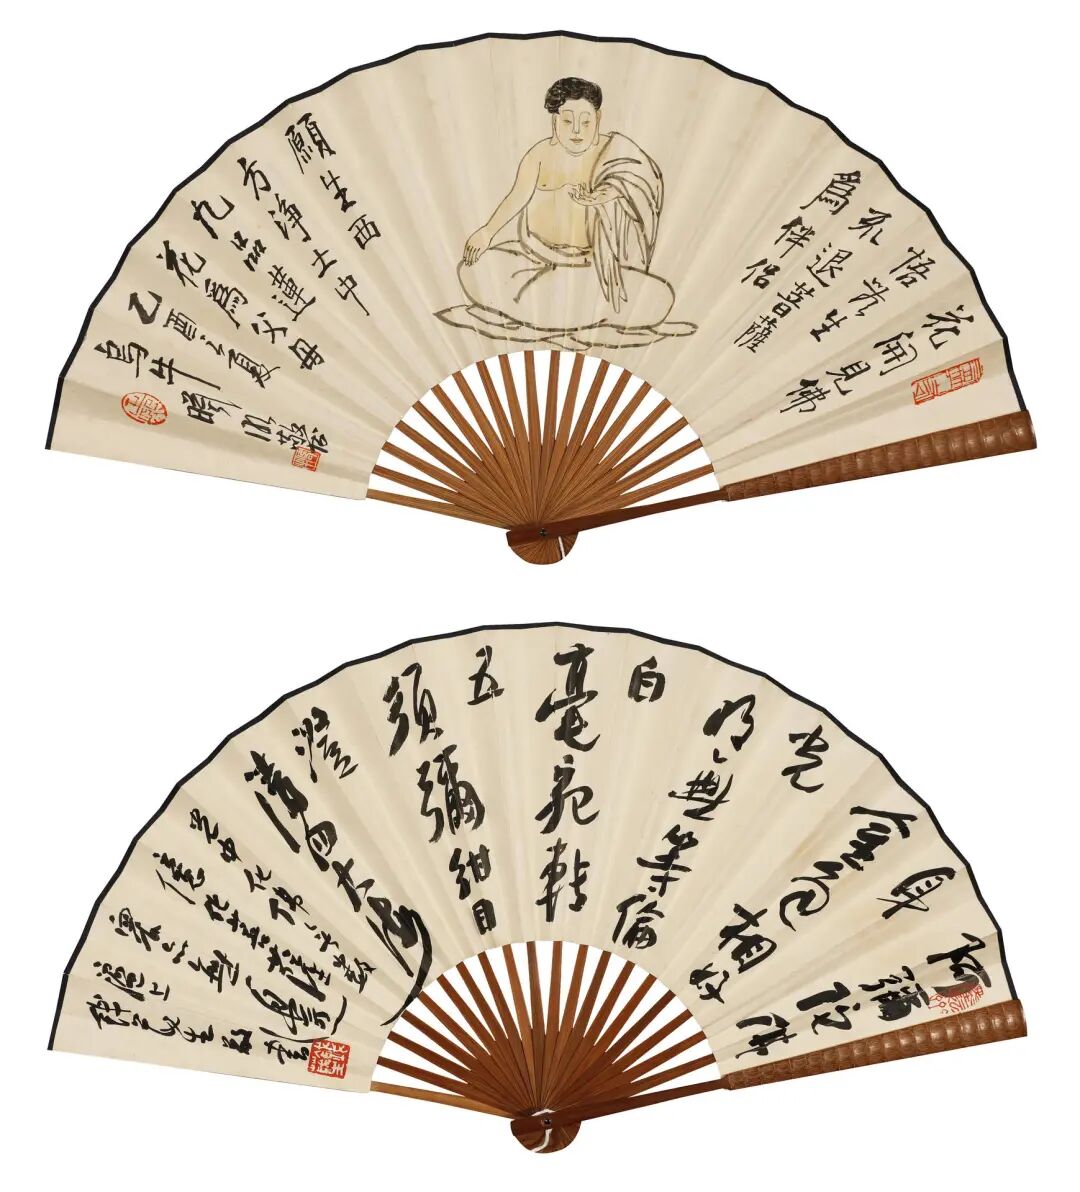 花開見佛
悟无生
不退菩薩
為伴侶
願生西
方淨土中
九品蓮
花為父母
乙酉之夏
阿彌陀佛
身
金色相好
光
明無等倫
白
毫宛轉
五
須彌紺目
澄
清四大海
光中化佛無數
億化菩薩眾